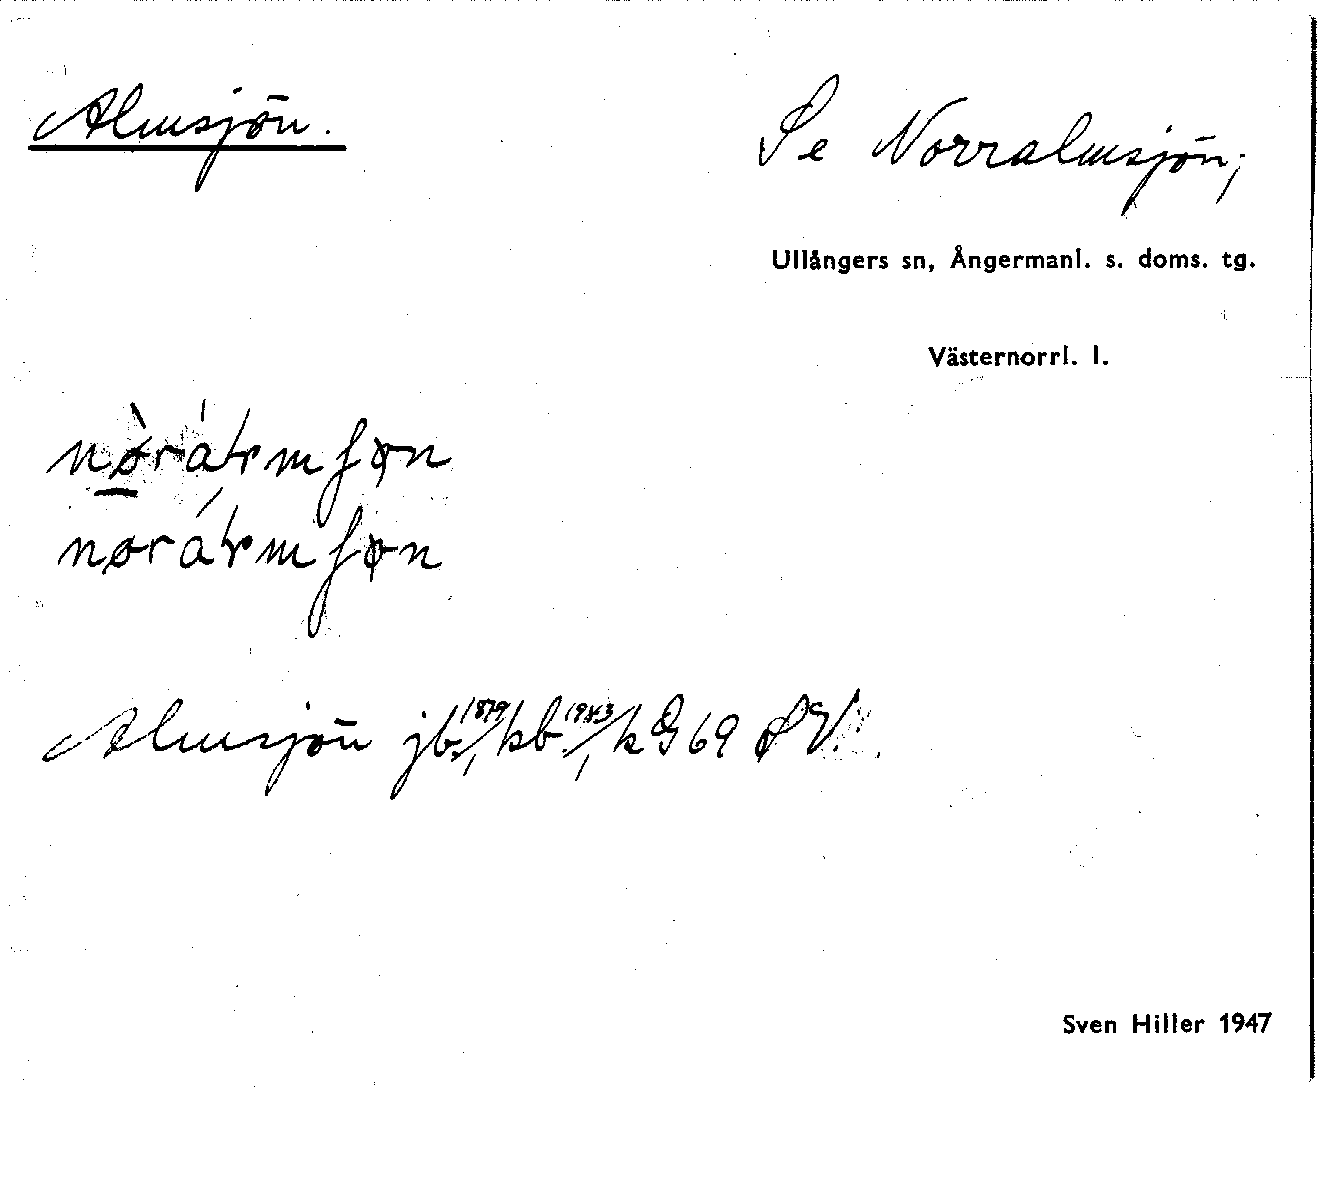 Almsjön.
Se Norralmsjön;
Ullångers sn, Ångermanl. s. doms. tg.
Västernorrl. l.
Almsjön jb 1879, kb 1943, kG 69 SV.
Sven Hiller 1947